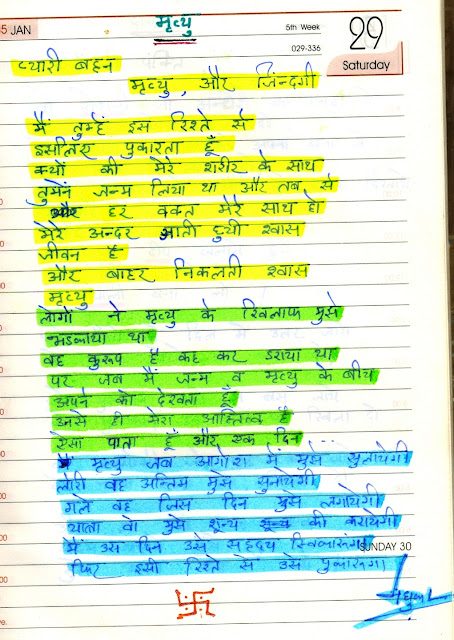 5 JAN
मृत्यु
5th Week
029-336
29
Saturday
प्यारी बहन
मृत्यु, और जिंदगी
मैं तुम्हें इस रिश्ते से
इसलिए पुकारता हूँ
क्यों की मेरे शरीर के साथ
तुमनें जन्म लिया था और तब से
और हर वक्त मेरे साथ हो
मेरे अन्दर आती हुयी श्वास
जीवन है
और बाहर निकलती श्वास
मृत्यु
लोगों ने मृत्यु के खिलाफ मुझे
भडकाया था
वह कुरूप है कह कर डराया था
पर जब मैं जन्म व मृत्यु के बीच
अपने को देखता हूँ
उनसे ही मेरा अस्तित्व है
ऐसा पाता हूँ और एक दिन ...
मृत्यु जब आगोश में मुझे सुलायेगी
लोरी वह अन्तिम मुझे सुनायेगी
गले वह जिस दिन मुझे लगायेगी
यात्रा वो मुझे शून्य शून्य की करायेगी
मैं उस दिन उसे सहृदय स्विकारूंगा
SUNDAY 30
फिर इसी रिश्ते से उसे पुकारूंगा